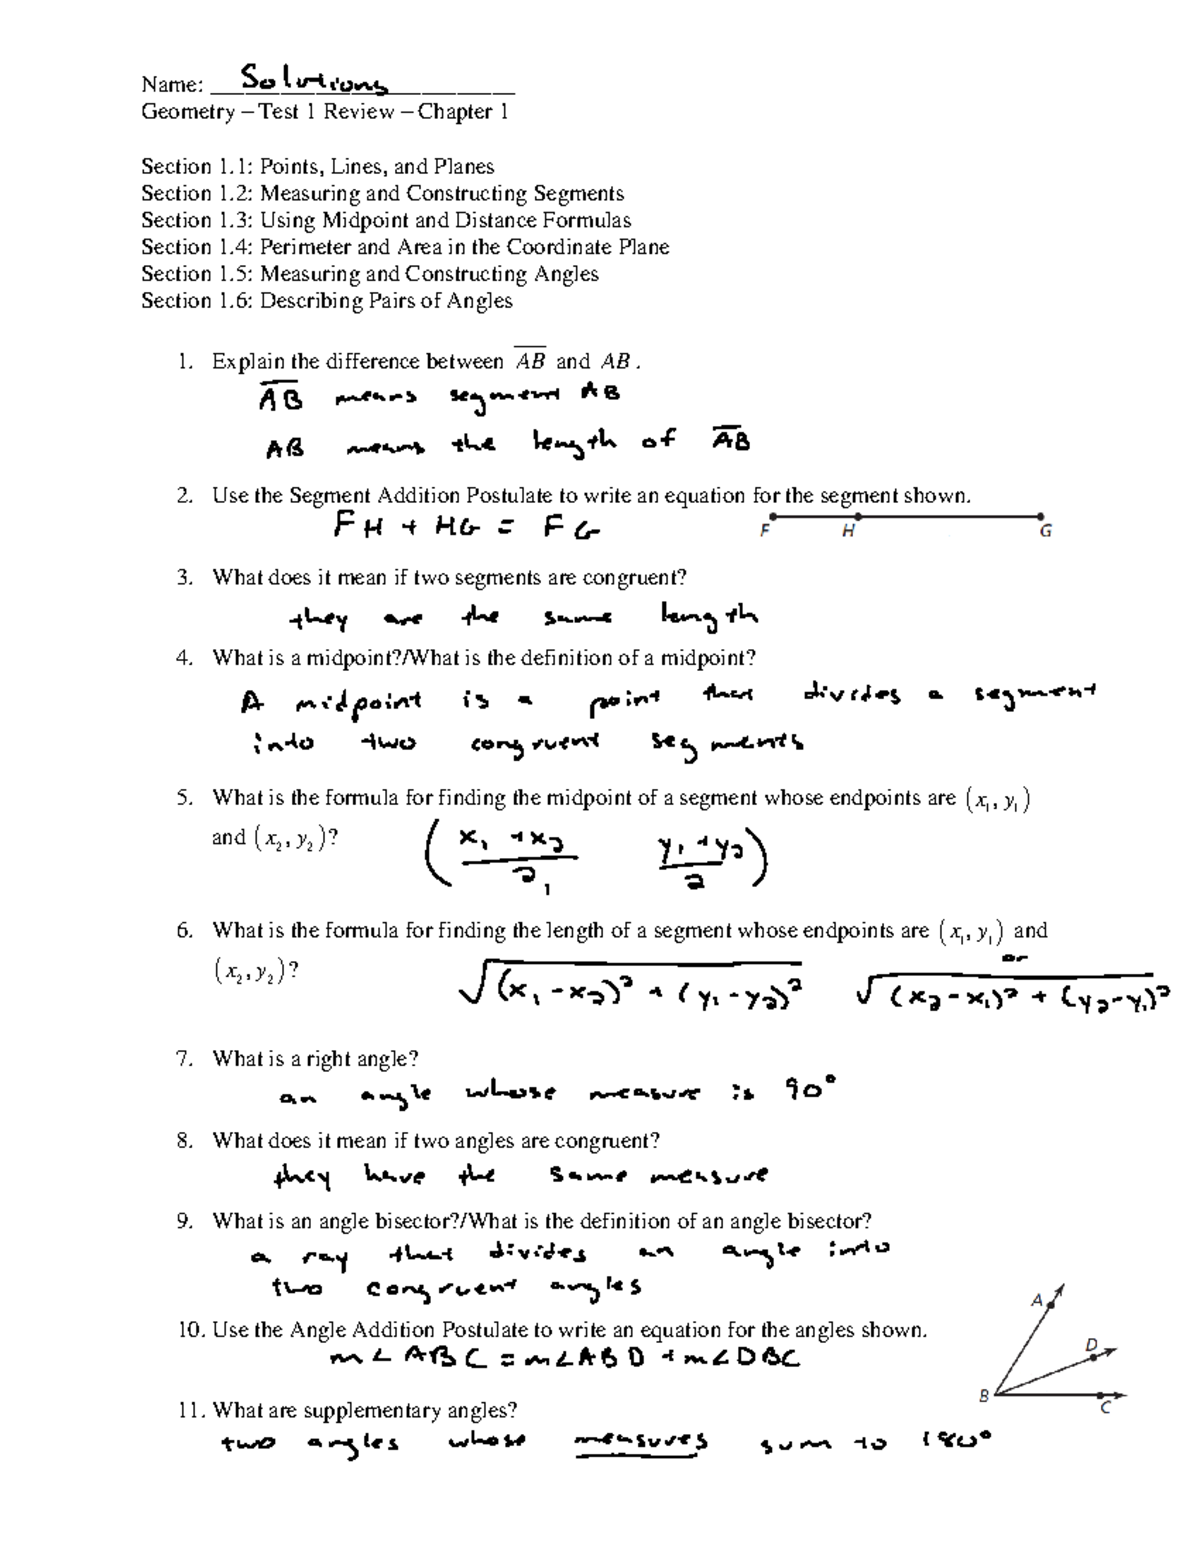 Name: Solutions
Geometry – Test 1 Review – Chapter 1
Section 1.1: Points, Lines, and Planes
Section 1.2: Measuring and Constructing Segments
Section 1.3: Using Midpoint and Distance Formulas
Section 1.4: Perimeter and Area in the Coordinate Plane
Section 1.5: Measuring and Constructing Angles
Section 1.6: Describing Pairs of Angles
1. Explain the difference between A̅B̅ and AB.
A̅B̅ means segment AB
AB means the length of A̅B̅
2. Use the Segment Addition Postulate to write an equation for the segment shown.
FH + HG = FG
F H G
3. What does it mean if two segments are congruent?
they are the same length
4. What is a midpoint?/What is the definition of a midpoint?
A midpoint is a point that divides a segment
into two congruent segments
5. What is the formula for finding the midpoint of a segment whose endpoints are (x₁, y₁)
and (x₂, y₂)? ((x₁ + x₂)/2, (y₁ + y₂)/2)
6. What is the formula for finding the length of a segment whose endpoints are (x₁, y₁) and
(x₂, y₂)? √((x₁ - x₂)² + (y₁ - y₂)²) or √((x₂ - x₁)² + (y₂ - y₁)²)
7. What is a right angle?
an angle whose measure is 90°
8. What does it mean if two angles are congruent?
they have the same measure
9. What is an angle bisector?/What is the definition of an angle bisector?
a ray that divides an angle into
two congruent angles
10. Use the Angle Addition Postulate to write an equation for the angles shown.
m∠ABC = m∠ABD + m∠DBC
A
D
B
C
11. What are supplementary angles?
two angles whose measures sum to 180°